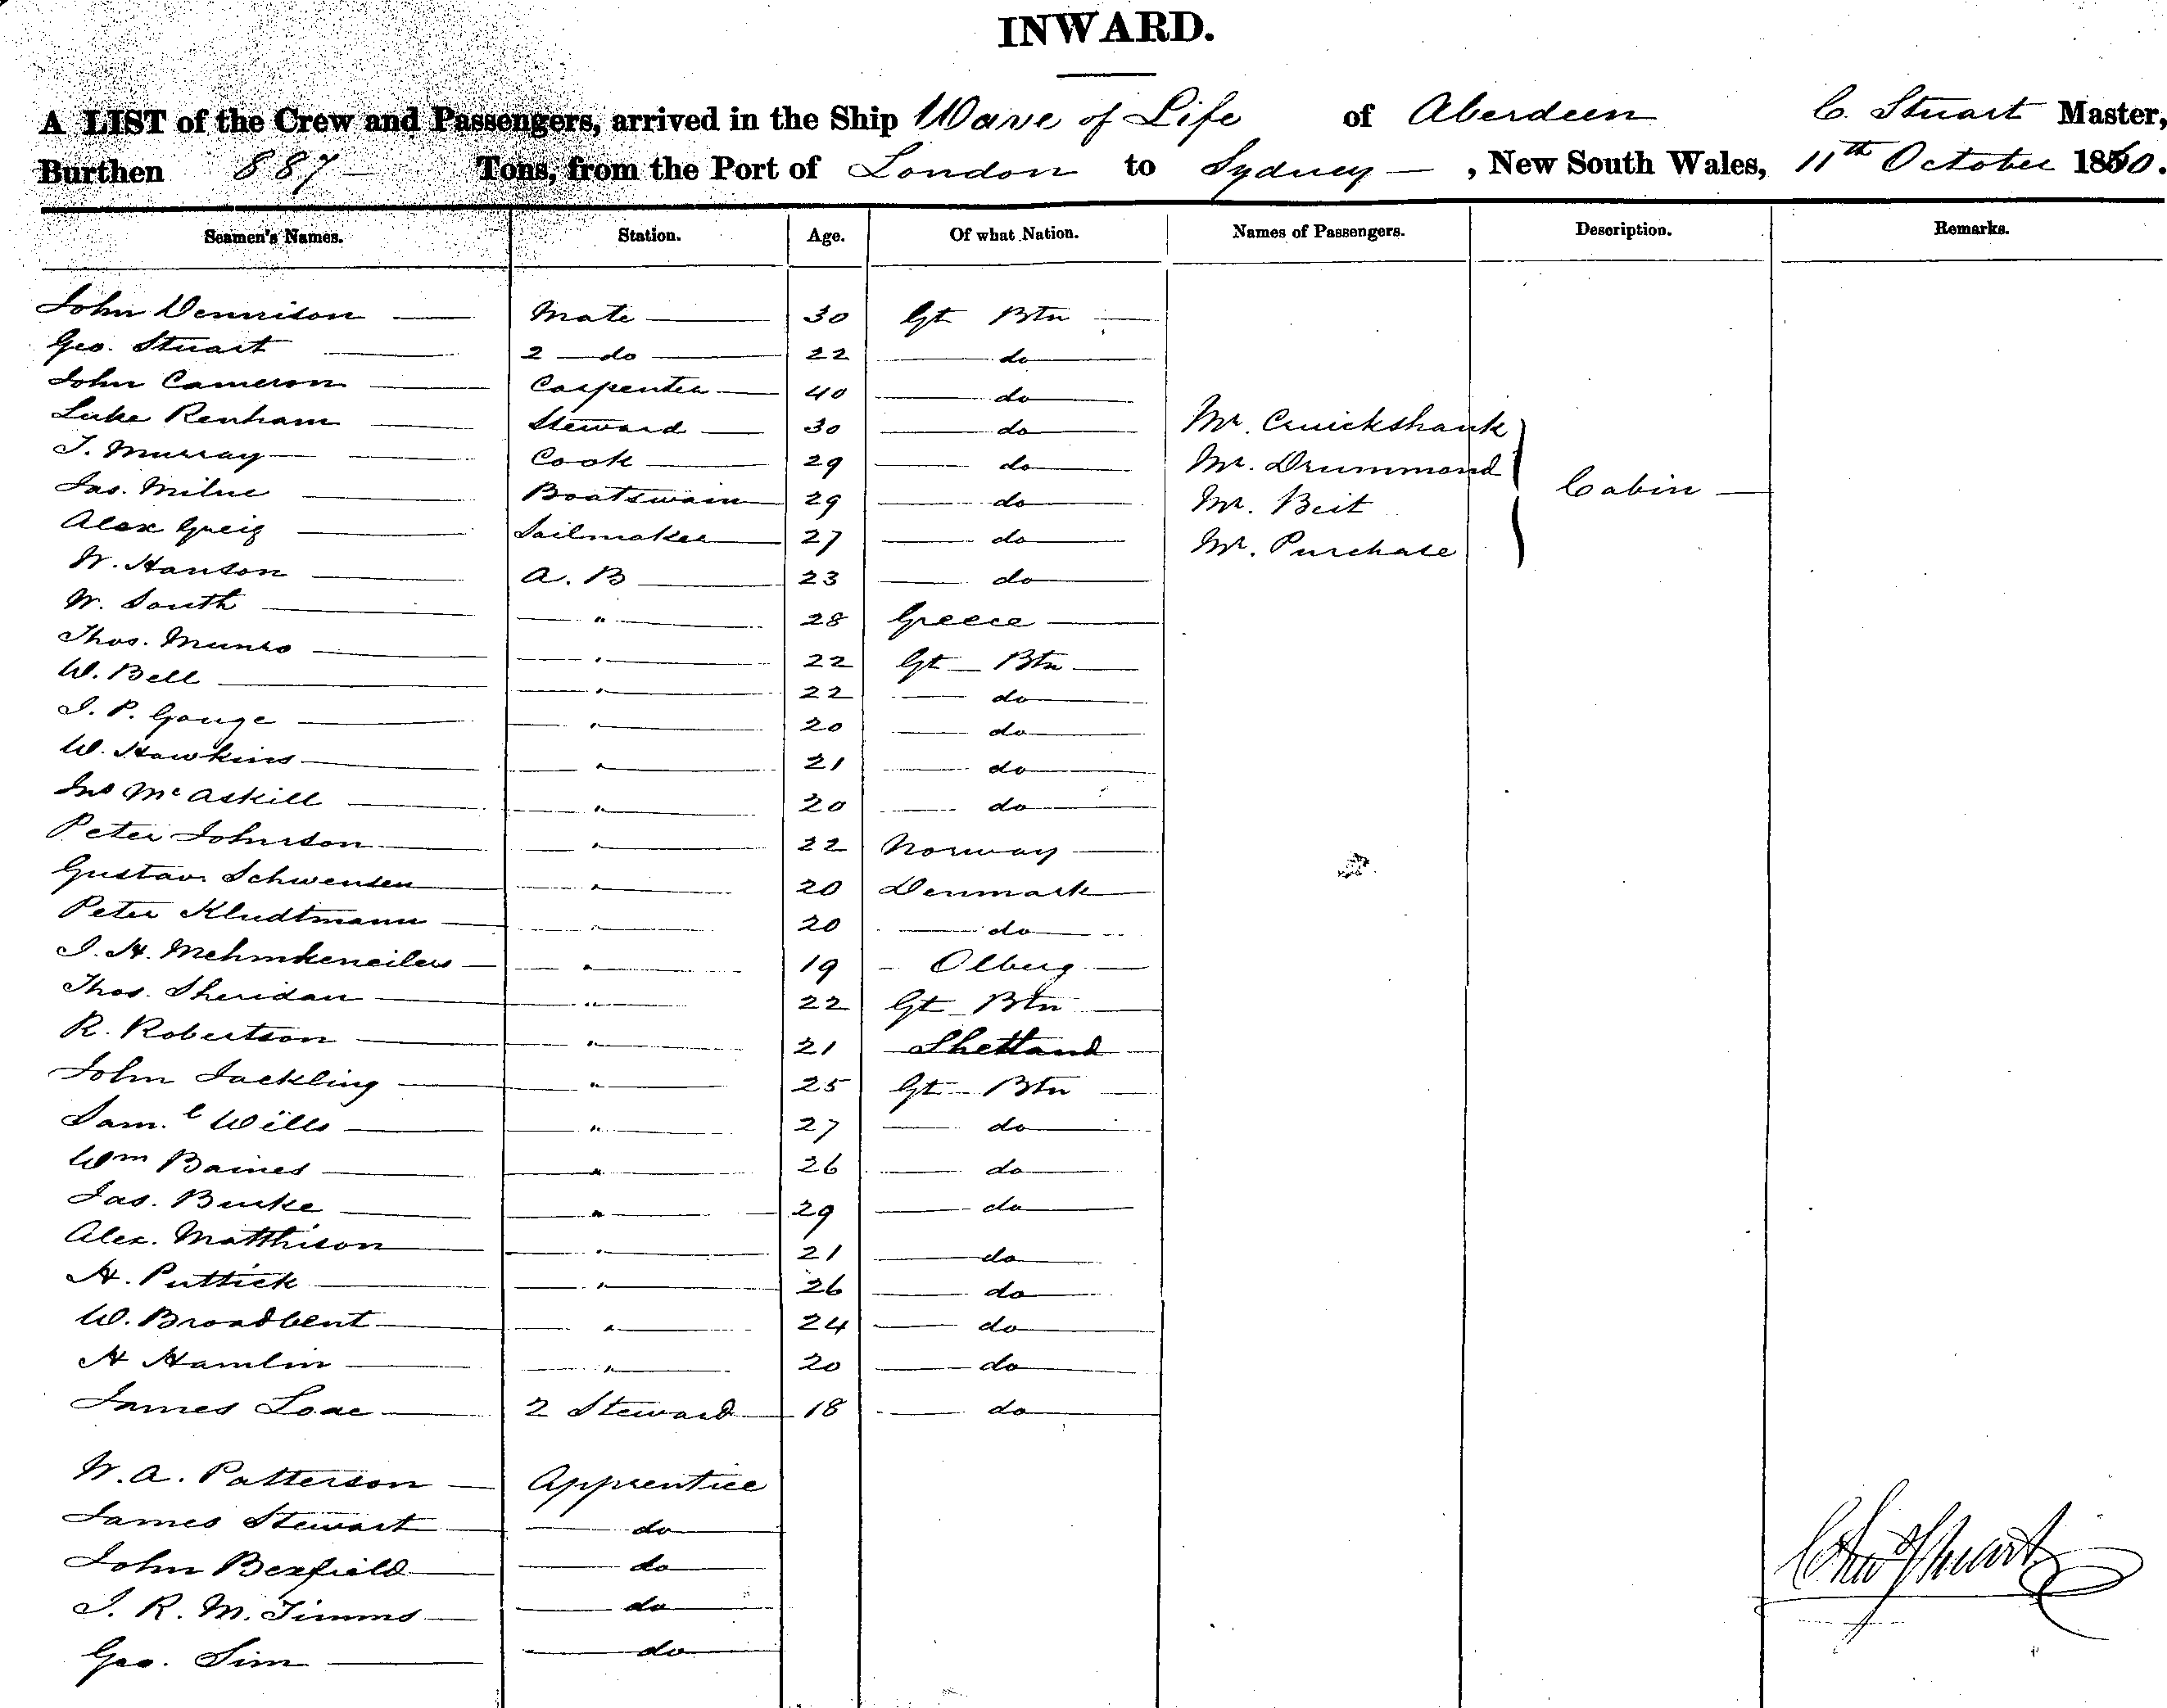 INWARD.
A LIST of the Crew and Passengers, arrived in the Ship Wave of Life of Aberdeen C. Stuart Master,
Burthen 887 Tons, from the Port of London to Sydney, New South Wales, 11th October 1860.
Seamen's Names. Station. Age. Of what Nation. Names of Passengers. Description. Remarks.
John Dennison Mate 30 Gt Btn
Geo. Stuart 2 do 22 do
John Cameron Carpenter 40 do
Luke Renham Steward 30 do Mr. Cruickshank
J. Murray Cook 29 do Mr. Drummond
Jas. Milne Boatswain 29 do Mr. Beit Cabin
Alex Greig Sailmaker 27 do Mr. Purchase
W. Hanson A. B 23 do
W. South " 28 Greece
Thos. Munro " 22 Gt Btn
W. Bell " 22 do
J. P. Gouge " 20 do
W. Hawkins " 21 do
Jno McAskill " 20 do
Peter Johnson " 22 Norway
Gustav. Schwensen " 20 Denmark
Peter Kludtmann " 20 do
J. H. Mehmkeneilers " 19 Olberg
Thos. Sheridan " 22 Gt Btn
R. Robertson " 21 Shetland
John Jackling " 25 Gt Btn
Saml Wills " 27 do
Wm Baines " 26 do
Jas. Burke " 29 do
Alex. Matthison " 21 do
H. Puttick " 26 do
W. Broadbent " 24 do
H Hamlin " 20 do
James Loae 2 Steward 18 do
W. A. Patterson Apprentice
James Stewart do
John Bexfield do
J. R. M. Timms do
Geo. Sim do